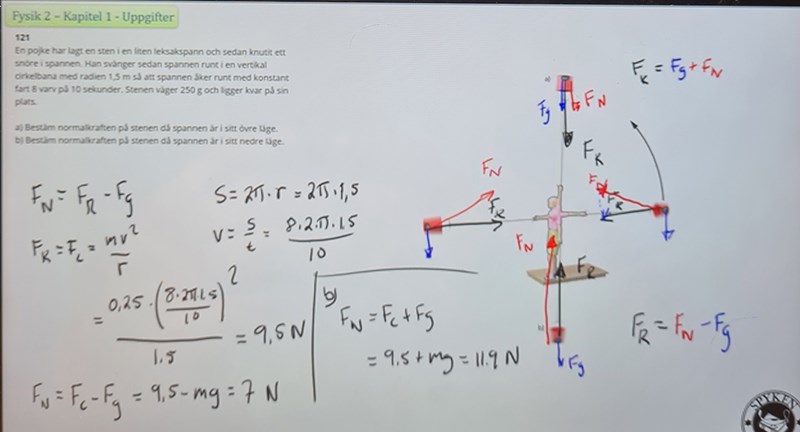 Fysik 2 – Kapitel 1 - Uppgifter
121
En pojke har lagt en sten i en liten leksakspann och sedan knutit ett
snöre i spannen. Han svänger sedan spannen runt i en vertikal
cirkelbana med radien 1,5 m så att spannen åker runt med konstant
fart 8 varv på 10 sekunder. Stenen väger 250 g och ligger kvar på sin
plats.
a) Bestäm normalkraften på stenen då spannen är i sitt övre läge.
b) Bestäm normalkraften på stenen då spannen är i sitt nedre läge.
F_N = F_R - F_g
F_R = F_c = mv²/r
= 0,25 · (8·2π1.5/10)² / 1.5 = 9,5 N
F_N = F_c - F_g = 9,5 - mg = 7 N
S = 2π·r = 2π·1,5
V = s/t = 8·2·π·1.5/10
b)
F_N = F_c + F_g
= 9.5 + mg = 11.9 N
a)
F_g
F_N
F_R
F_R = F_g + F_N
F_N
F_R
F_N
F_R
F_N
F_R
b)
F_g
F_R = F_N - F_g
SPYKEN